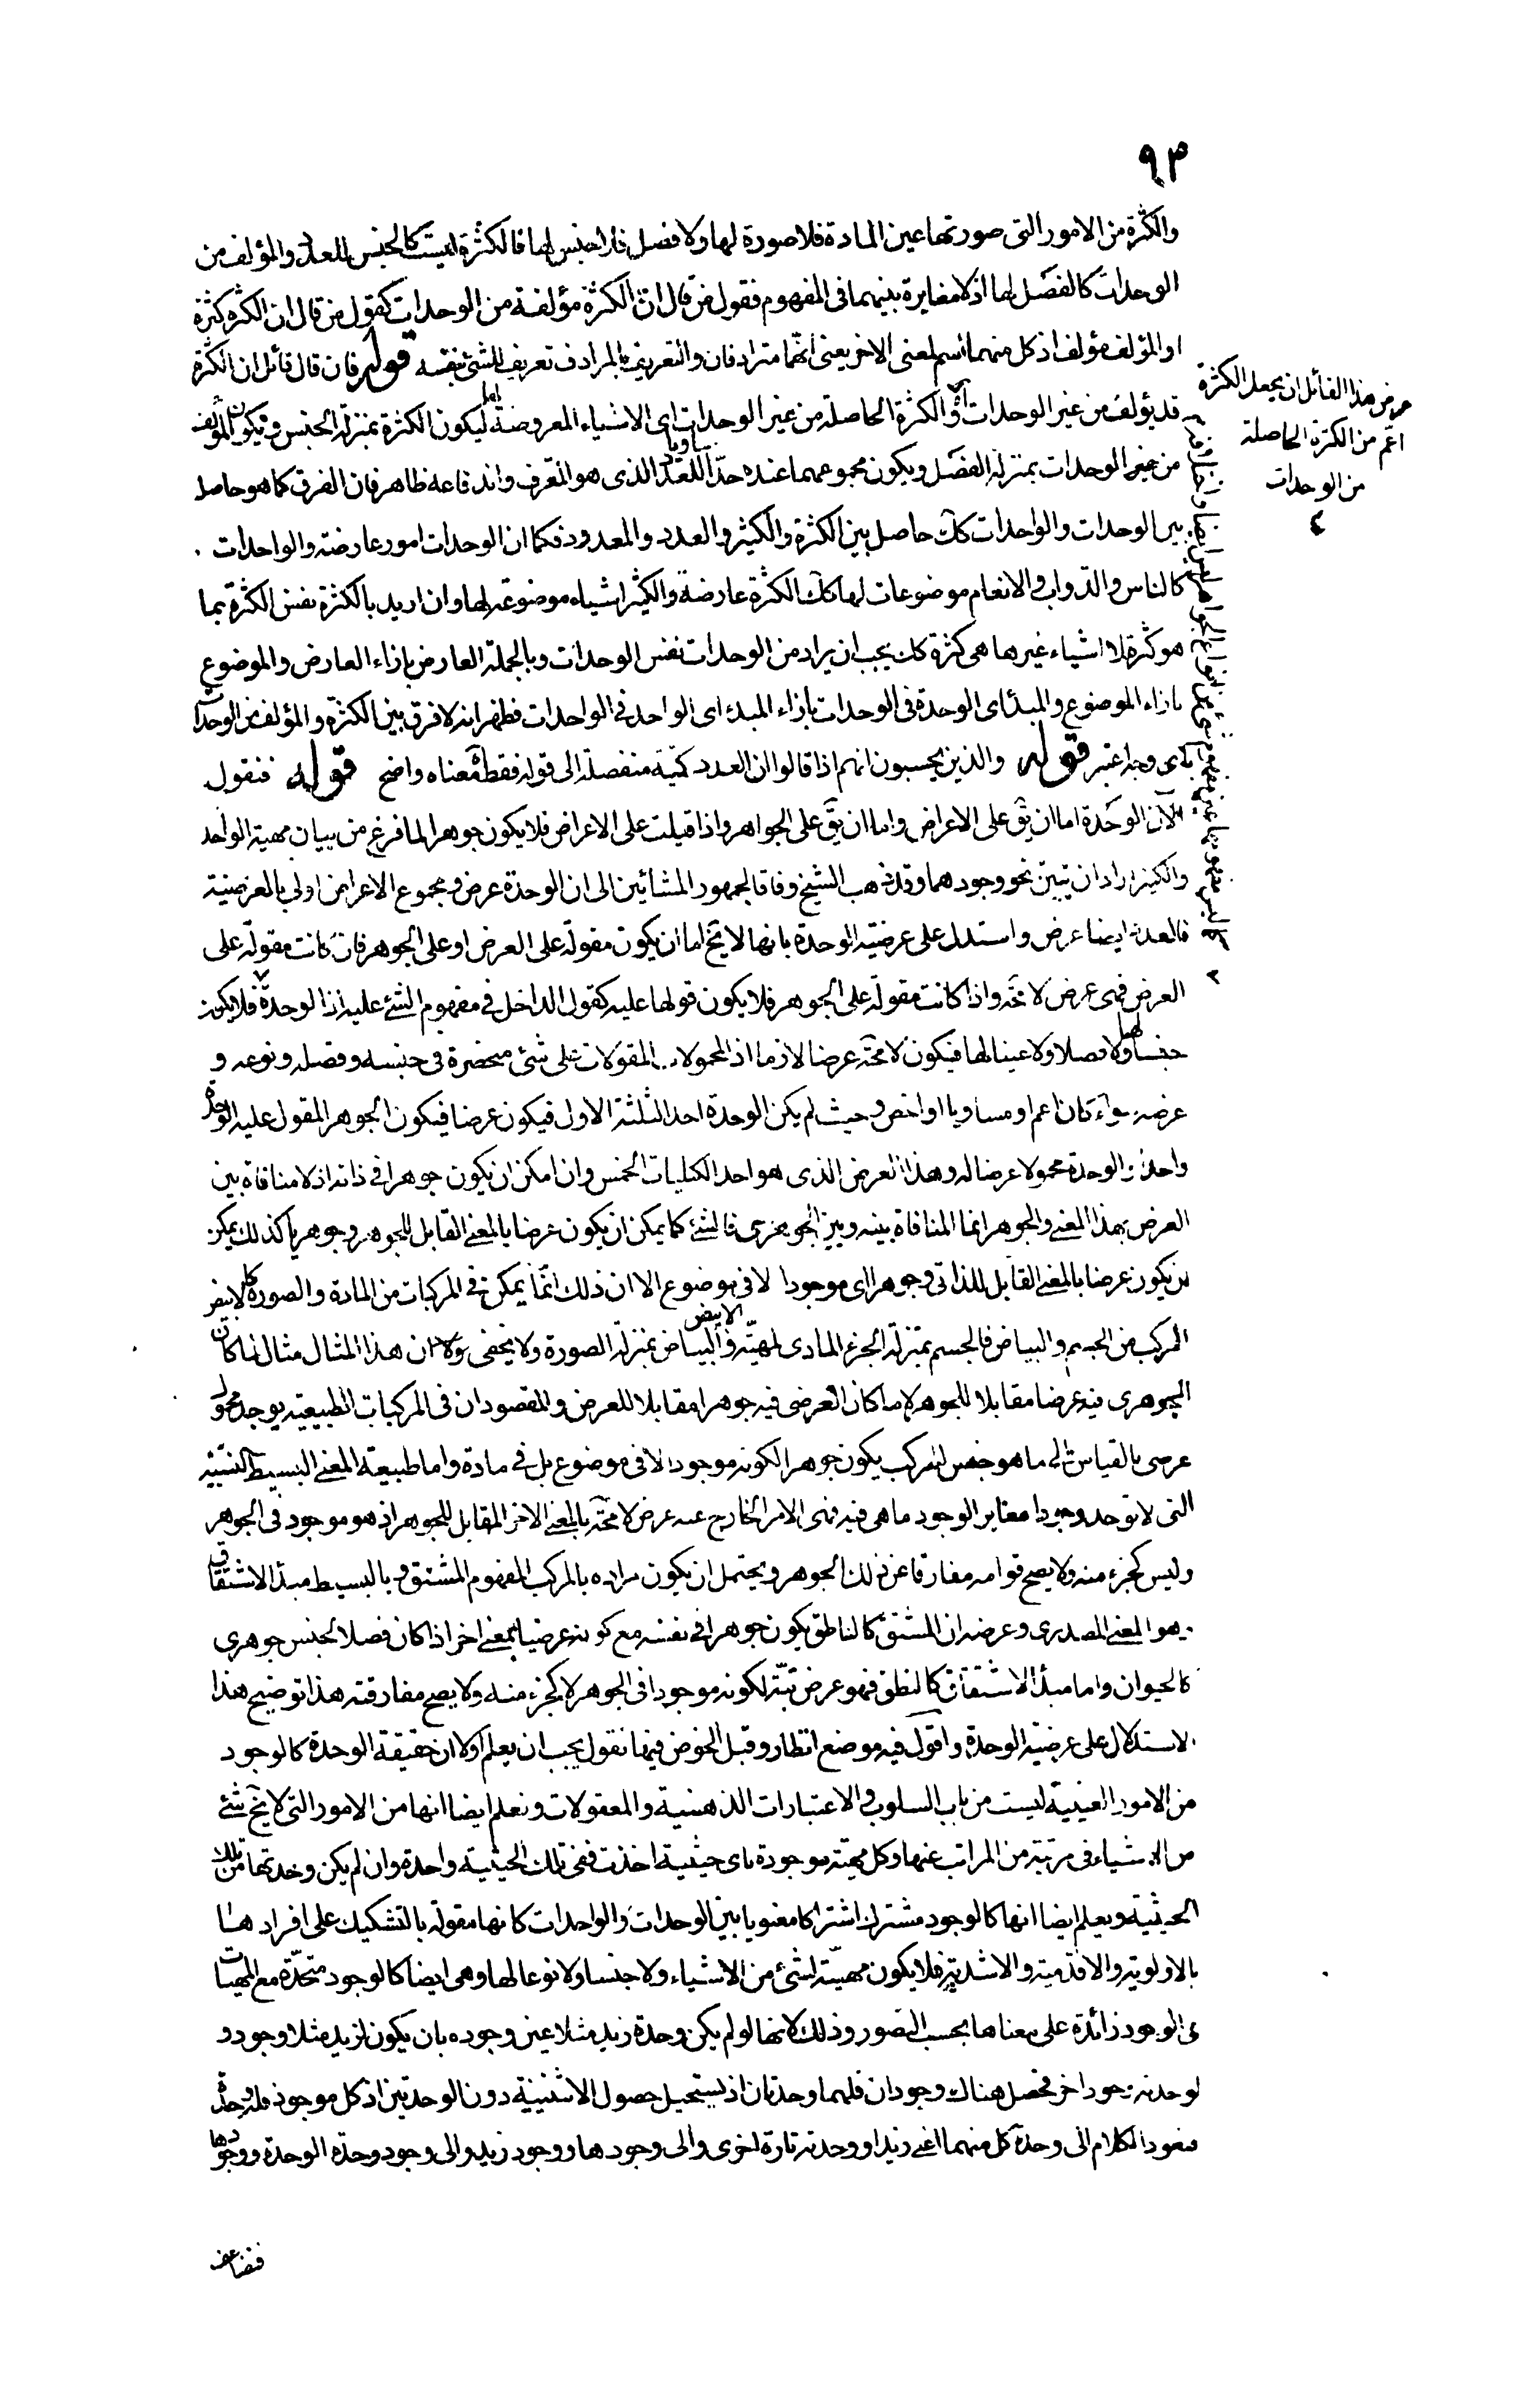 ٩٣
والكثرة من الامور التى صورتها عين المادة فلا صورة لها ولا فصل فلا جنس لها فالكثرة ليست كالجنس للعدد والمؤلف من
الوحدات كالفصل لها اذ لا مغايرة بينهما فى المفهوم فقول من قال ان الكثرة مؤلفة من الوحدات كقول من قال ان الكثرة كثرة
او المؤلف مؤلف اذ كل منهما اسم لمعنى الاخر يعنى انهما مترادفان والتعريف بالمرادف تعريف للشئ بنفسه قوله فان قال قائل ان الكثرة
قد يؤلف من غير الوحدات اى والكثرة الحاصلة من غير الوحدات اى الاشياء المعروضة لها ليكون الكثرة بمنزلة الجنس ويكون المؤلف
من غير الوحدات بمنزلة الفصل ويكون مجموعهما عنده حدا مساويا للعدد الذى هو المعرف واندفاعه ظاهر فان الفرق كما هو حاصل
بين الوحدات والواحدات كك حاصل بين الكثرة والكثير والعدد والمعدود فكما ان الوحدات امور عارضة والواحدات
كالناس والدواب والانعام موضوعات لها كك الكثرة عارضة والكثير اشياء موضوعة لها وان اريد بالكثرة نفس الكثرة بما
هو كثرة لا اشياء غيرها هى كثرة كك يجب ان يراد من الوحدات نفس الوحدات وبالجملة العارض بازاء العارض والموضوع
بازاء الموضوع والمبدء اى الوحدة فى الوحدات بازاء المبدء اى الواحد فى الواحدات فظهر انه لا فرق بين الكثرة والمؤلف من الوحدات
باى وجه اعتبر قوله والذين يحسبون انهم اذا قالوا ان العدد كمية منفصلة الى قوله فقط معناه واضح قوله فنقول
الان الوحدة اما ان يق على الاعراض واما ان يق على الجواهر واذا قيلت على الاعراض فلا يكون جوهرا لما فرغ من بيان مهية الواحد
والكثير اراد ان يبين نحو وجودهما وقد ذهب الشيخ وفاقا لجمهور المشائين الى ان الوحدة عرض ومجموع الاعراض اولى بالعرضية
فالعدد ايضا عرض واستدل على عرضية الوحدة بانها لا يخ اما ان يكون مقولة على العرض او على الجوهر فان كانت مقولة على
العرض فهى عرض لا محة واذا كانت مقولة على الجوهر فلا يكون قولها عليه كقول الداخل فى مفهوم الشئ عليه اذ الوحدة فلا يكون
جنسا لها ولا فصلا ولا عينا لها فيكون لا محة عرضا لازما اذ المحمولات المقولات على شئ منحصرة فى جنسه وفصله ونوعه و
عرضه سواء كان اعم او مساويا او اخص وحيث لم يكن الوحدة احد الثلثة الاول فيكون عرضا فيكون الجوهر المقول عليه الوحدة
واحدا والوحدة محمولا عرضا له وهذا العرض الذى هو احد الكليات الخمس وان امكن ان يكون جوهرا فى ذاته اذ لا منافاة بين
العرض بهذا المعنى والجوهر انما المنافاة بينه وبين الجوهرى فالشئ كما يمكن ان يكون عرضا بالمعنى القابل للجوهر وجوهريا كذلك يمكن
ان يكون عرضا بالمعنى القابل للذاتى وجوهرا اى موجودا لا فى موضوع الا ان ذلك انما يمكن فى المركبات من المادة والصورة كالابيض
المركب من الجسم والبياض فالجسم بمنزلة الجزء المادى لمهية الابيض والبياض بمنزلة الصورة ولا يخفى اولا ان هذا المثال مثال لما كان
الجوهرى فيه عرضا مقابلا للجوهر لا ما كان العرضى فيه جوهرا مقابلا للعرض والمقصود ان فى المركبات الطبيعية يوجد محمول
عرضى بالقياس الى ما هو جنس المركب يكون جوهرا لكونه موجودا لا فى موضوع بل فى مادة واما طبيعة المعنى البسيط النسبية
التى لا توجد وجودا مغاير الوجود ما هى فيه فهى الامر الخارج عنه عرض لا محة بالمعنى الاخر المقابل للجوهر اذ هو موجود فى الجوهر
وليس كجزء منه ولا يصح قوامه مفارقا عن ذلك الجوهر ويحتمل ان يكون مراده بالمركب المفهوم المشتق وبالبسيط مبدأ الاشتقاق
وهو المعنى المصدرى وغرضه ان المشتق كالناطق يكون جوهرا فى نفسه مع كونه عرضيا بمعنى اخر اذا كان فصلا لجنس جوهرى
كالحيوان واما مبدأ الاشتقاق كالنطق فهو عرض البتة لكونه موجودا فى الجوهر لا كجزء منه ولا يصح مفارقته هذا توضيح هذا
الاستدلال على عرضية الوحدة واقول فيه موضع انظار وقبل الخوض فيها نقول يجب ان يعلم اولا ان حقيقة الوحدة كالوجود
من الامور العينية ليست من باب السلوب والاعتبارات الذهنية والمعقولات ونعلم ايضا انها من الامور التى لا يخ شئ
من الاشياء فى مرتبة من المراتب عنها وكل مهية موجودة باى حيثية اخذت ففى تلك الحيثية واحدة وان لم يكن وحدتها من تلك
الحيثية ويعلم ايضا انها كالوجود مشترك اشتراكا معنويا بين الوحدات والواحدات كانها مقولة بالتشكيك على افرادها
بالاولوية والاقدمية والاشدية فلا يكون مهية لشئ من الاشياء ولا جنسا ولا نوعا لها وهى ايضا كالوجود متحدة مع المهيات
فى الوجود زائدة على معناها بحسب التصور وذلك لانها لو لم يكن وحدة زيد مثلا عين وجوده بان يكون لزيد مثلا وجود و
لوحدته وجود اخر فحصل هناك وجودان فلهما وحدتان اذ يستحيل حصول الاثنينية دون الوحدتين اذ كل موجود فله وحدة
فنعود الكلام الى وحدة كل منهما اعنى زيدا ووحدته تارة اخرى والى وجودها ووجود زيد والى وجود وحدة الوحدة ووجودها
فتضاعف
غرض هذا القائل ان يجعل الكثرة
اعم من الكثرة الحاصلة
من الوحدات
٤